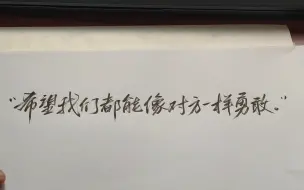 “希望我们都能像对方一样勇敢.”